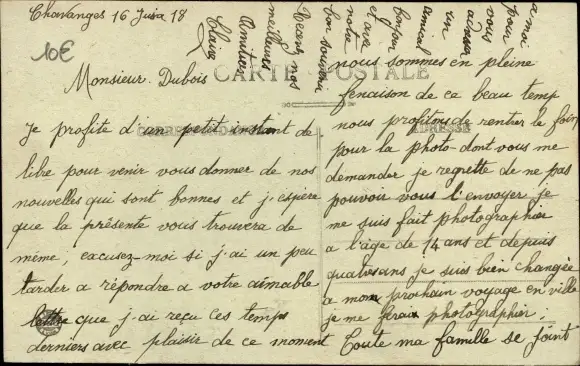 Chavanges 16 Juin 18
10€
CARTE POSTALE
CORRESPONDANCE
ADRESSE
Monsieur Dubois
Je profite d'un petit instant de
libre pour venir vous donner de nos
nouvelles qui sont bonnes et j'espère
que la présente vous trouvera de
même, excusez-moi si j'ai un peu
tarder a répondre a votre aimable
lettre que j'ai reçu ces temps
derniers avec plaisir de ce moment
nous sommes en pleine
fenaison de ce beau temp
nous profitons de rentrer le foin
pour la photo dont vous me
demander je regrette de ne pas
pouvoir vous l'envoyer je
me suis fait photographier
a l'âge de 14 ans et depuis
quatre ans je suis bien changée
a mon prochain voyage en ville
je me ferai photographier,
Toute ma famille se joint
a moi
pour
vous
adresser
un
amical
bonjour
et
notre
bon souvenir
Recevez nos
meilleurs
Amitiés
Claire